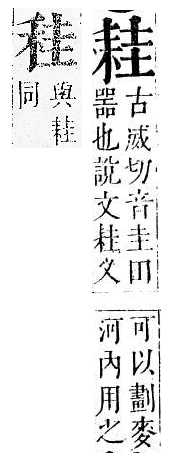 𦓯
古滅切音圭田
器也說文𦓯叉
可以劃麥
河內用之
䅅
與𦓯
同